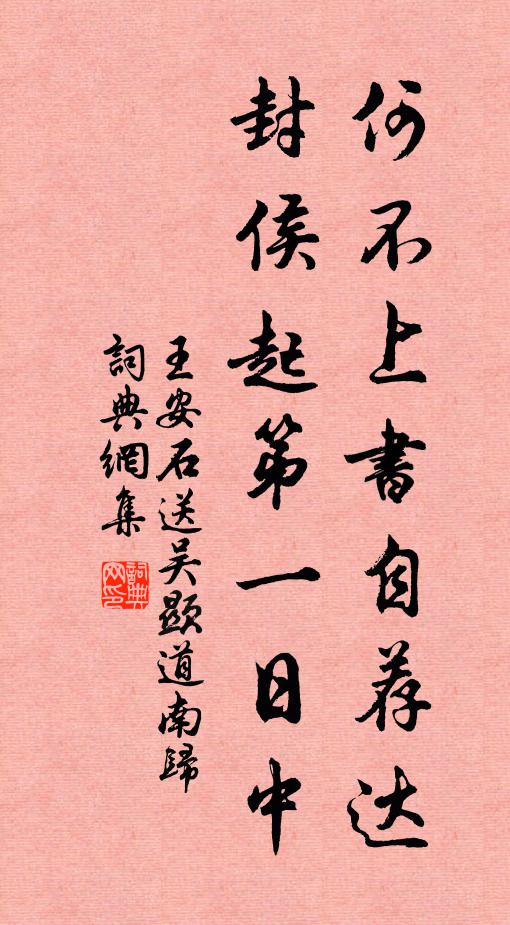 何不上書自荐达
封侯起第一日中
王安石送吴顯道南歸
詞典網集
詞典网印